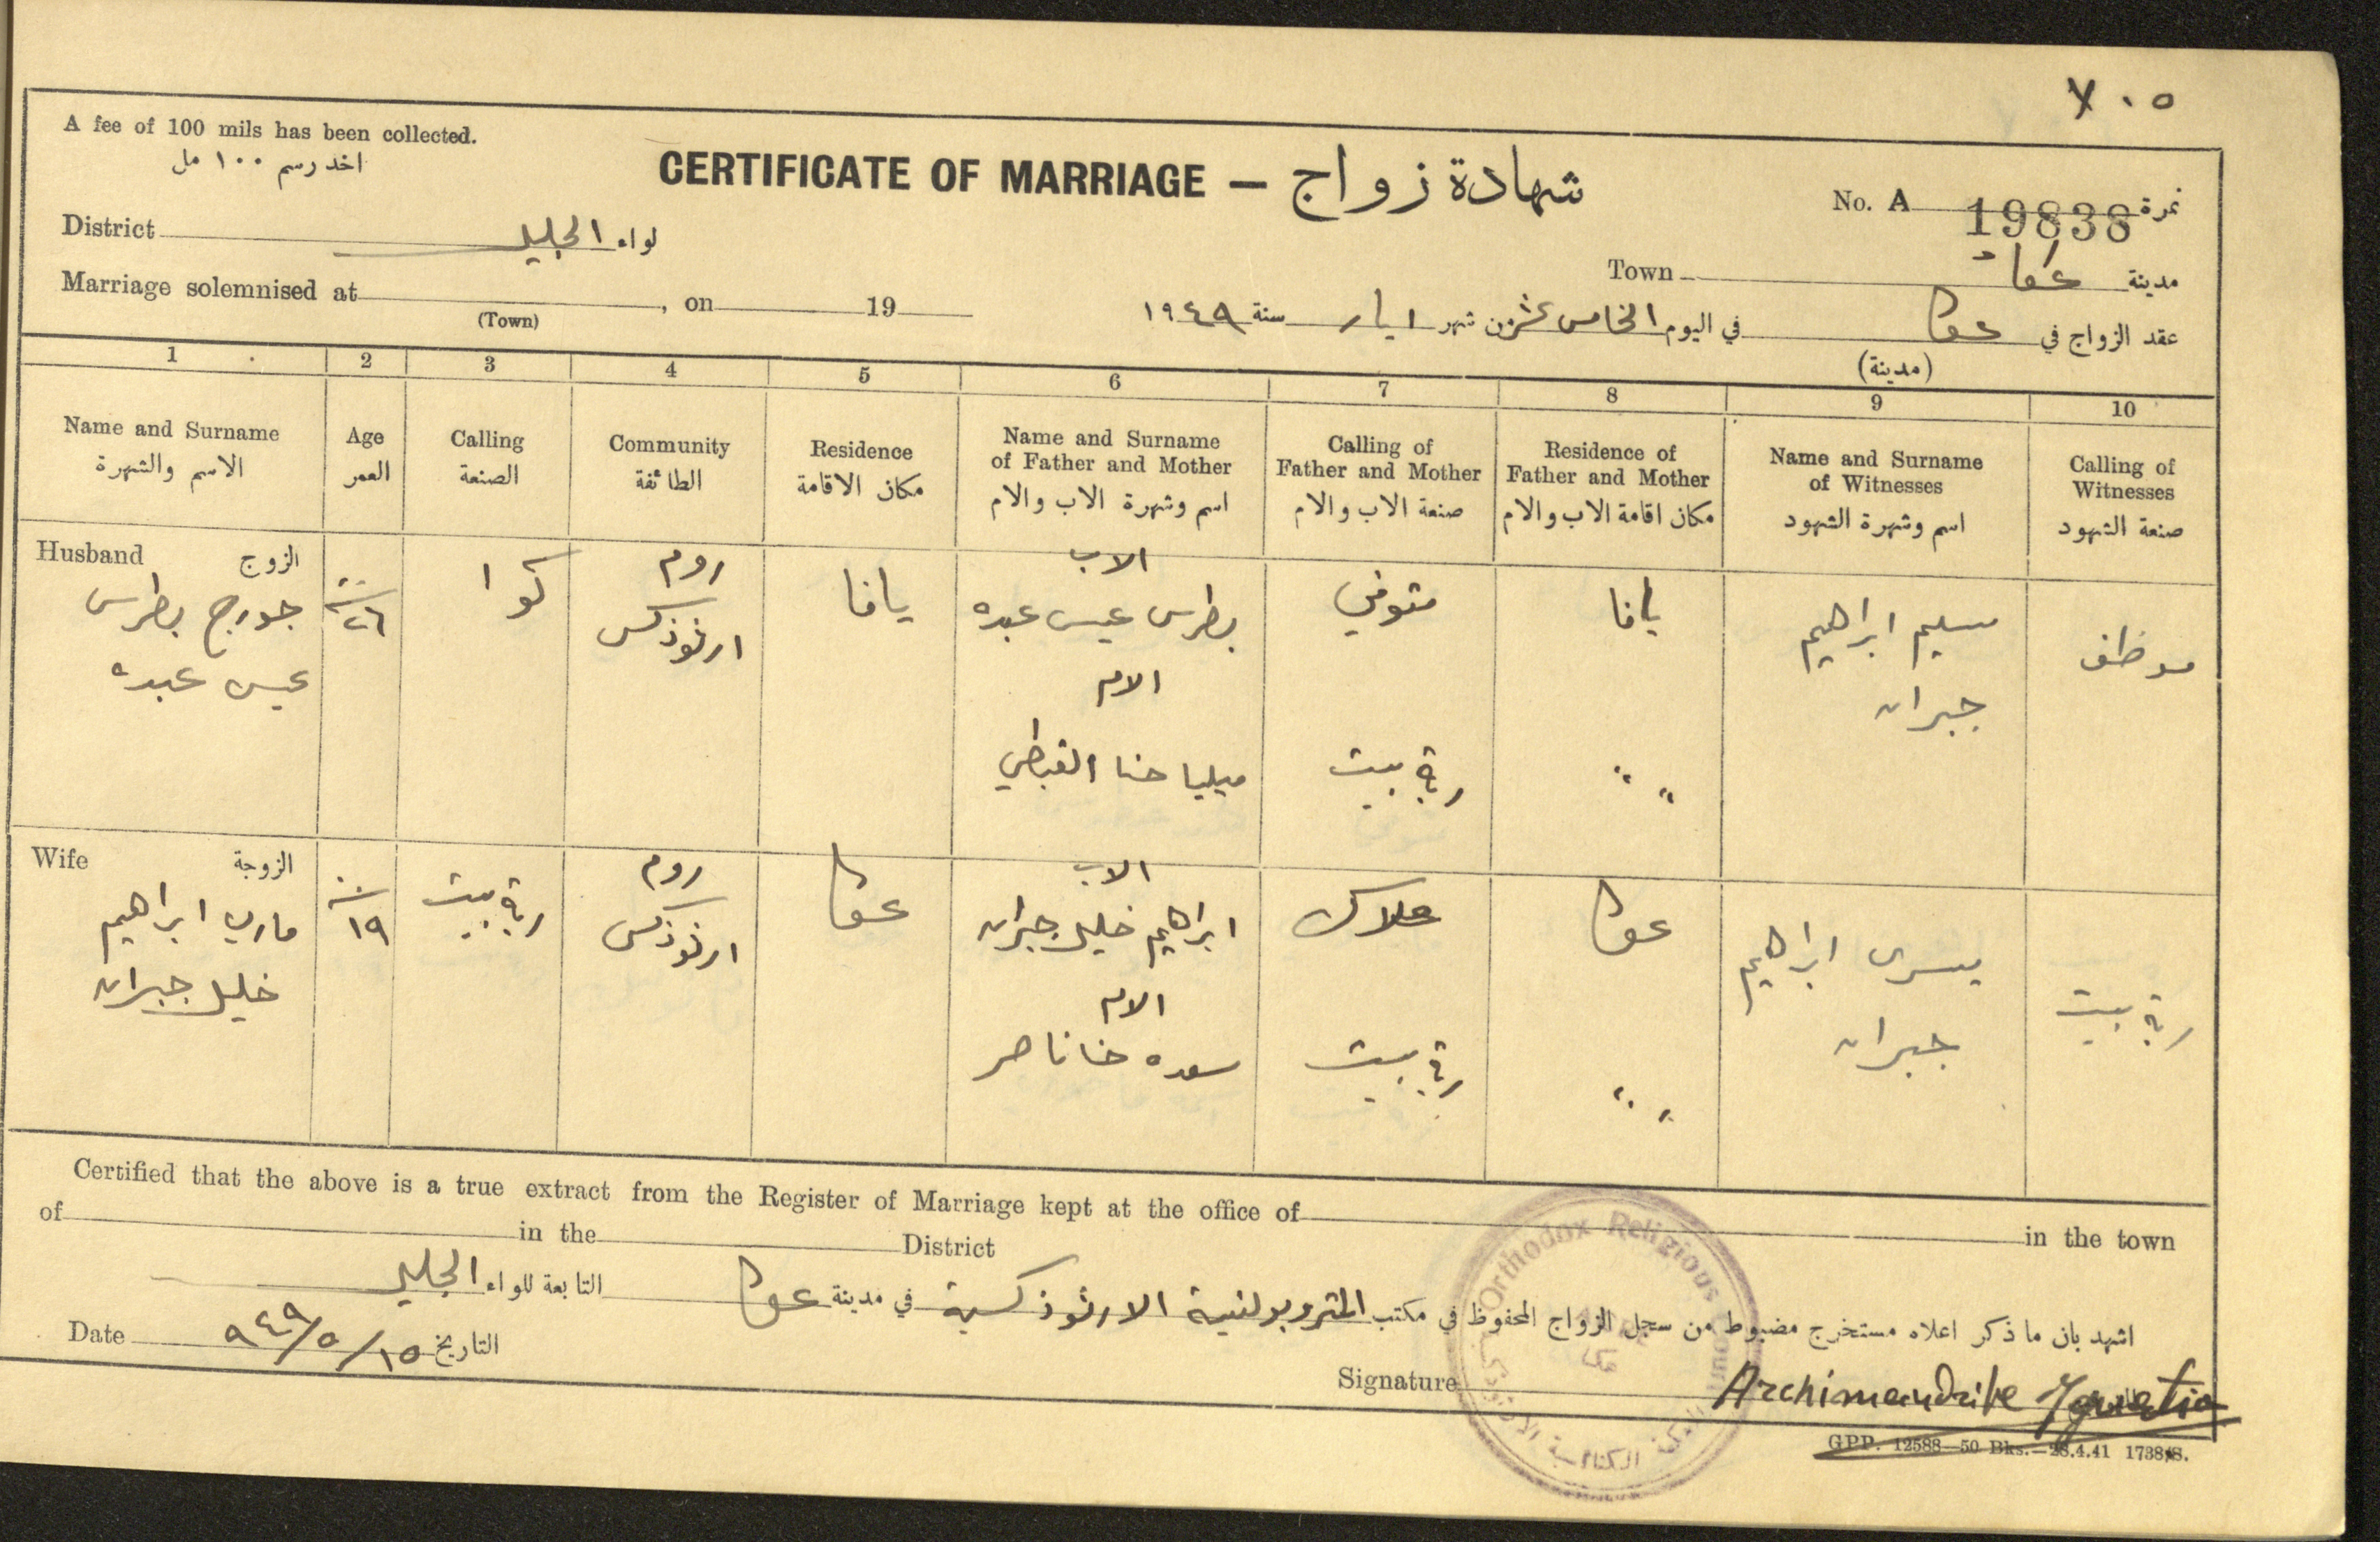 ٧٠٥
A fee of 100 mils has been collected.
اخذ رسم ١٠٠ مل
CERTIFICATE OF MARRIAGE — شهادة زواج
No. A 19838 نمرة
District لواء الجليل
Town مدينة عكا
Marriage solemnised at , on 19
(Town)
عقد الزواج في عكا في اليوم الخامس عشر من شهر ايار سنة ١٩٤٩
(مدينة)
1 2 3 4 5 6 7 8 9 10
Name and Surname
الاسم والشهرة
Age
العمر
Calling
الصنعة
Community
الطائفة
Residence
مكان الاقامة
Name and Surname
of Father and Mother
اسم وشهرة الاب والام
Calling of
Father and Mother
صنعة الاب والام
Residence of
Father and Mother
مكان اقامة الاب والام
Name and Surname
of Witnesses
اسم وشهرة الشهود
Calling of
Witnesses
صنعة الشهود
Husband الزوج
جورج بطرس
عيسى عبده
سنة
٢٦
كوا
روم
ارثوذكس
يافا
الاب
بطرس عيسى عبده
الام
ميليا حنا القبطي
متوفي
ربة بيت
يافا
" "
سليم ابراهيم
جبران
موظف
Wife الزوجة
ماري ابراهيم
خليل جبران
سنة
١٩
ربة بيت
روم
ارثوذكس
عكا
الاب
ابراهيم خليل جبران
الام
سعده حنا ناصر
ملاك
ربة بيت
عكا
" "
يسرى ابراهيم
جبران
ربة بيت
Certified that the above is a true extract from the Register of Marriage kept at the office of in the town
of in the District
اشهد بان ما ذكر اعلاه مستخرج مضبوط من سجل الزواج المحفوظ في مكتب المتروبوليتية الارثوذكسية في مدينة عكا التابعة للواء الجليل
Date التاريخ ١٥/٥/٩٤٩
Signature Archimandrite Ignatio
Orthodox Religious Court
عكا
الكنائسية
GPP. 12588—50 Bks.—28.4.41